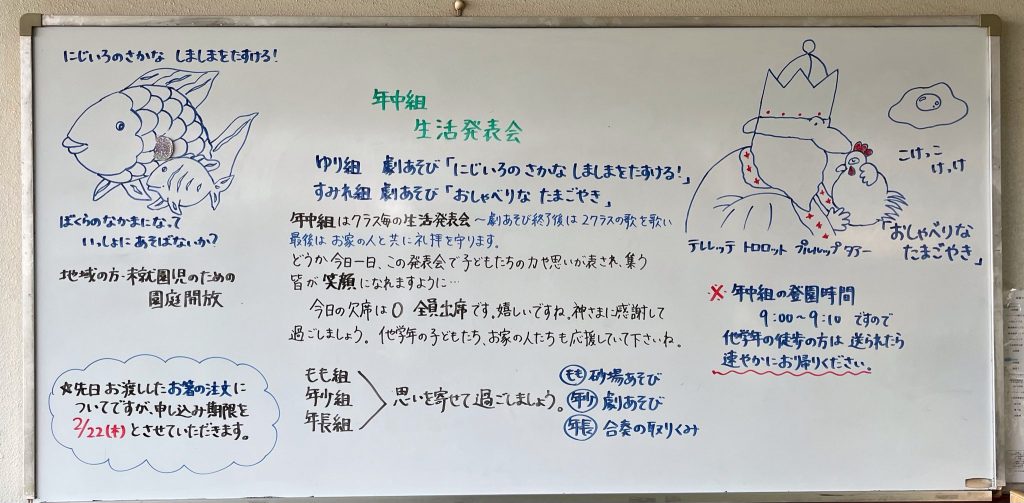 にじいろのさかな しましまをたすける!
ぼくらのなかまになって
いっしょにあそばないか?
地域の方・未就園児のための
園庭開放
☆先日お渡ししたお箸の注文に
ついてですが、申し込み期限を
2/22(木)とさせていただきます。
年中組
生活発表会
ゆり組 劇あそび「にじいろのさかな しましまをたすける!」
すみれ組 劇あそび「おしゃべりな たまごやき」
年中組はクラス毎の生活発表会 〜劇あそび終了後は2クラスの歌を歌い
最後は お家の人と共に礼拝を守ります。
どうか今日一日、この発表会で子どもたちの力や思いが表され、集う
皆が 笑顔になれますように…
今日の欠席は0 全員出席です。嬉しいですね。神さまに感謝して
過ごしましょう。他学年の子どもたち、お家の人たちも応援していて下さいね。
もも組
年少組
年長組
思いを寄せて過ごしましょう。
もも 砂場あそび
年少 劇あそび
年長 合奏の取りくみ
こけっこ
けっけ
テレレッテ トロロット プルルップ タタター
「おしゃべりな
たまごやき」
※年中組の登園時間
9:00〜9:10 ですので
他学年の徒歩の方は 送られたら
速やかにお帰りください。